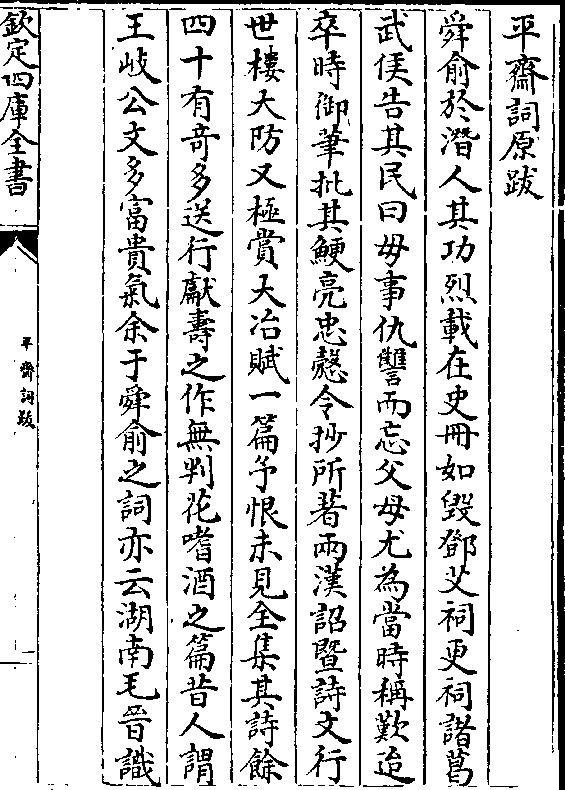 平齋詞原跋
舜俞於潛人其功烈載在史冊如毀鄧艾祠更祠諸葛
武侯告其民曰毋事仇讐而忘父母尤為當時稱歎迨
卒時御筆批其鯁亮忠慤令抄所著兩漢詔暨詩文行
世樓大防又極賞大冶賦一篇予恨未見全集其詩餘
四十有奇多送行獻壽之作無判花嗜酒之篇昔人謂
王岐公文多富貴氣余于舜俞之詞亦云湖南毛晉識
欽定四庫全書
平齋詞跋